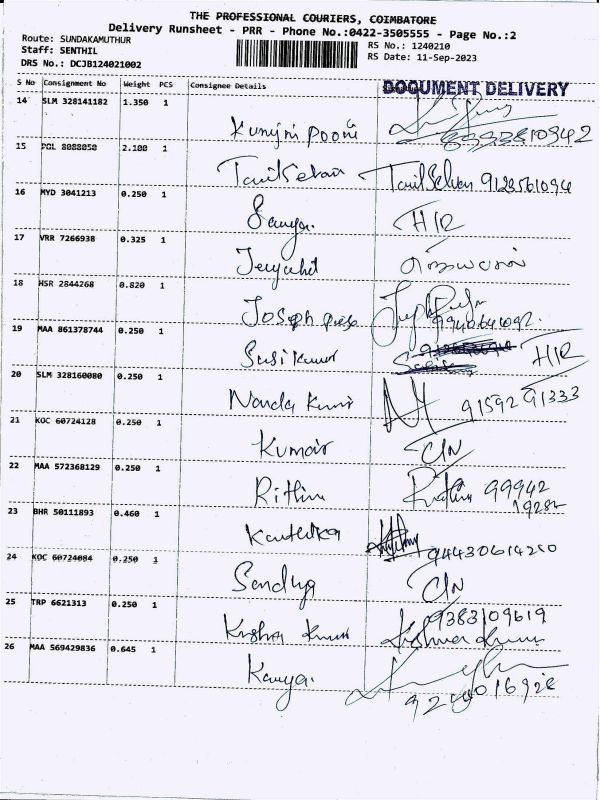 THE PROFESSIONAL COURIERS, COIMBATORE
Delivery Runsheet - PRR - Phone No.:0422-3505555 - Page No.:2
Route: SUNDAKAMUTHUR
Staff: SENTHIL
DRS No.: DCJB124021002
RS No.: 1240210
RS Date: 11-Sep-2023
S No Consignment No Weight PCS Consignee Details
DOCUMENT DELIVERY
14 SLM 328141182 1.350 1
15 PGL 8088050 2.100 1 Tamil Selvan 9123561094
16 MYD 3041213 0.250 1 H/R
17 VRR 7266938 0.325 1
18 HSR 2844268 0.820 1 Joseph
19 MAA 861378744 0.250 1 Susi Kumar H/R
20 SLM 328160080 0.250 1 Nanda Kumar 91592 91333
21 KOC 60724128 0.250 1 Kumar C/N
22 MAA 572368129 0.250 1 Rithin 99942
19282
23 BHR 50111893 0.460 1 94430614210
24 KOC 60724084 0.250 1 Sandhya C/N
25 TRP 6621313 0.250 1 Krishna Kumar 9383109619
Kishnan Kumar
26 MAA 569429836 0.645 1 Kavya.